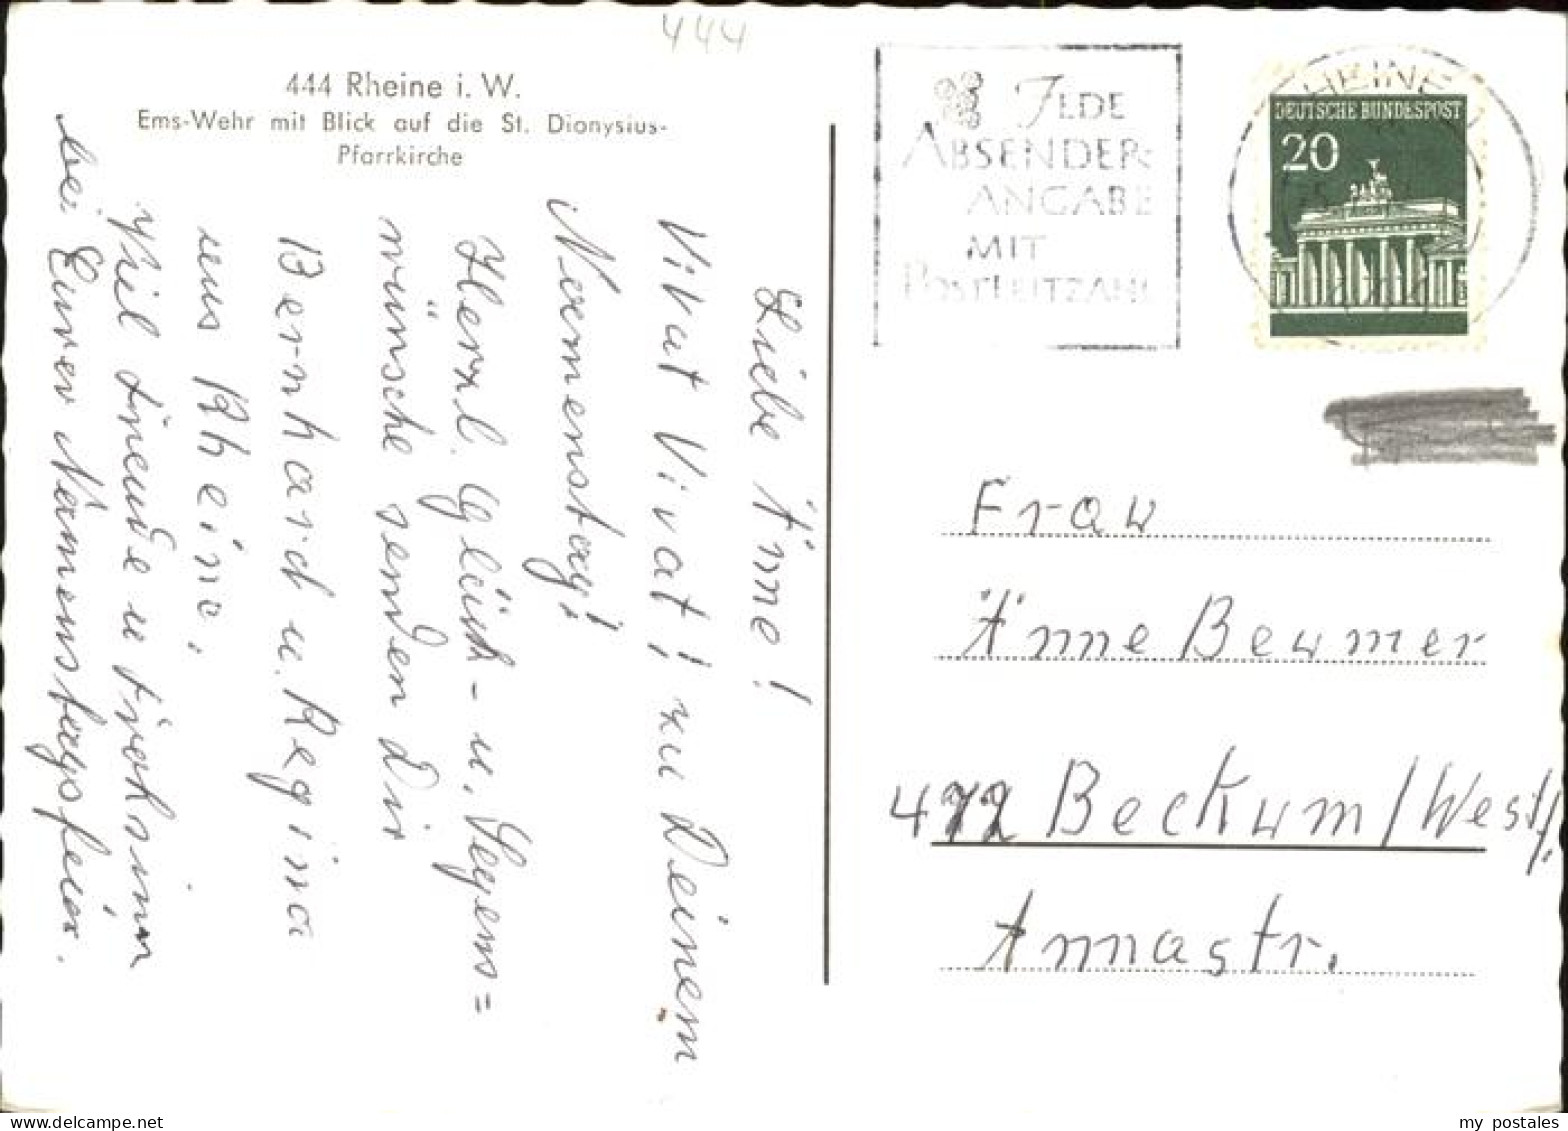 444
444 Rheine i. W.
Ems-Wehr mit Blick auf die St. Dionysius-
Pfarrkirche
Liebe Änne!
Vivat Vivat! zu Deinem
Namenstag!
Herzl. Glück- u. Segens=
wünsche senden Dir
Bernhard u. Regina
aus Rheine,
Viel Freude u Frohsinn
bei Eurer Namenstagsfeier.
JEDE
ABSENDER-
ANGABE
MIT
POSTLEITZAHL
RHEINE
DEUTSCHE BUNDESPOST
20
Frau
Änne Beumer
472 Beckum/Westf.
Annastr.
my postales